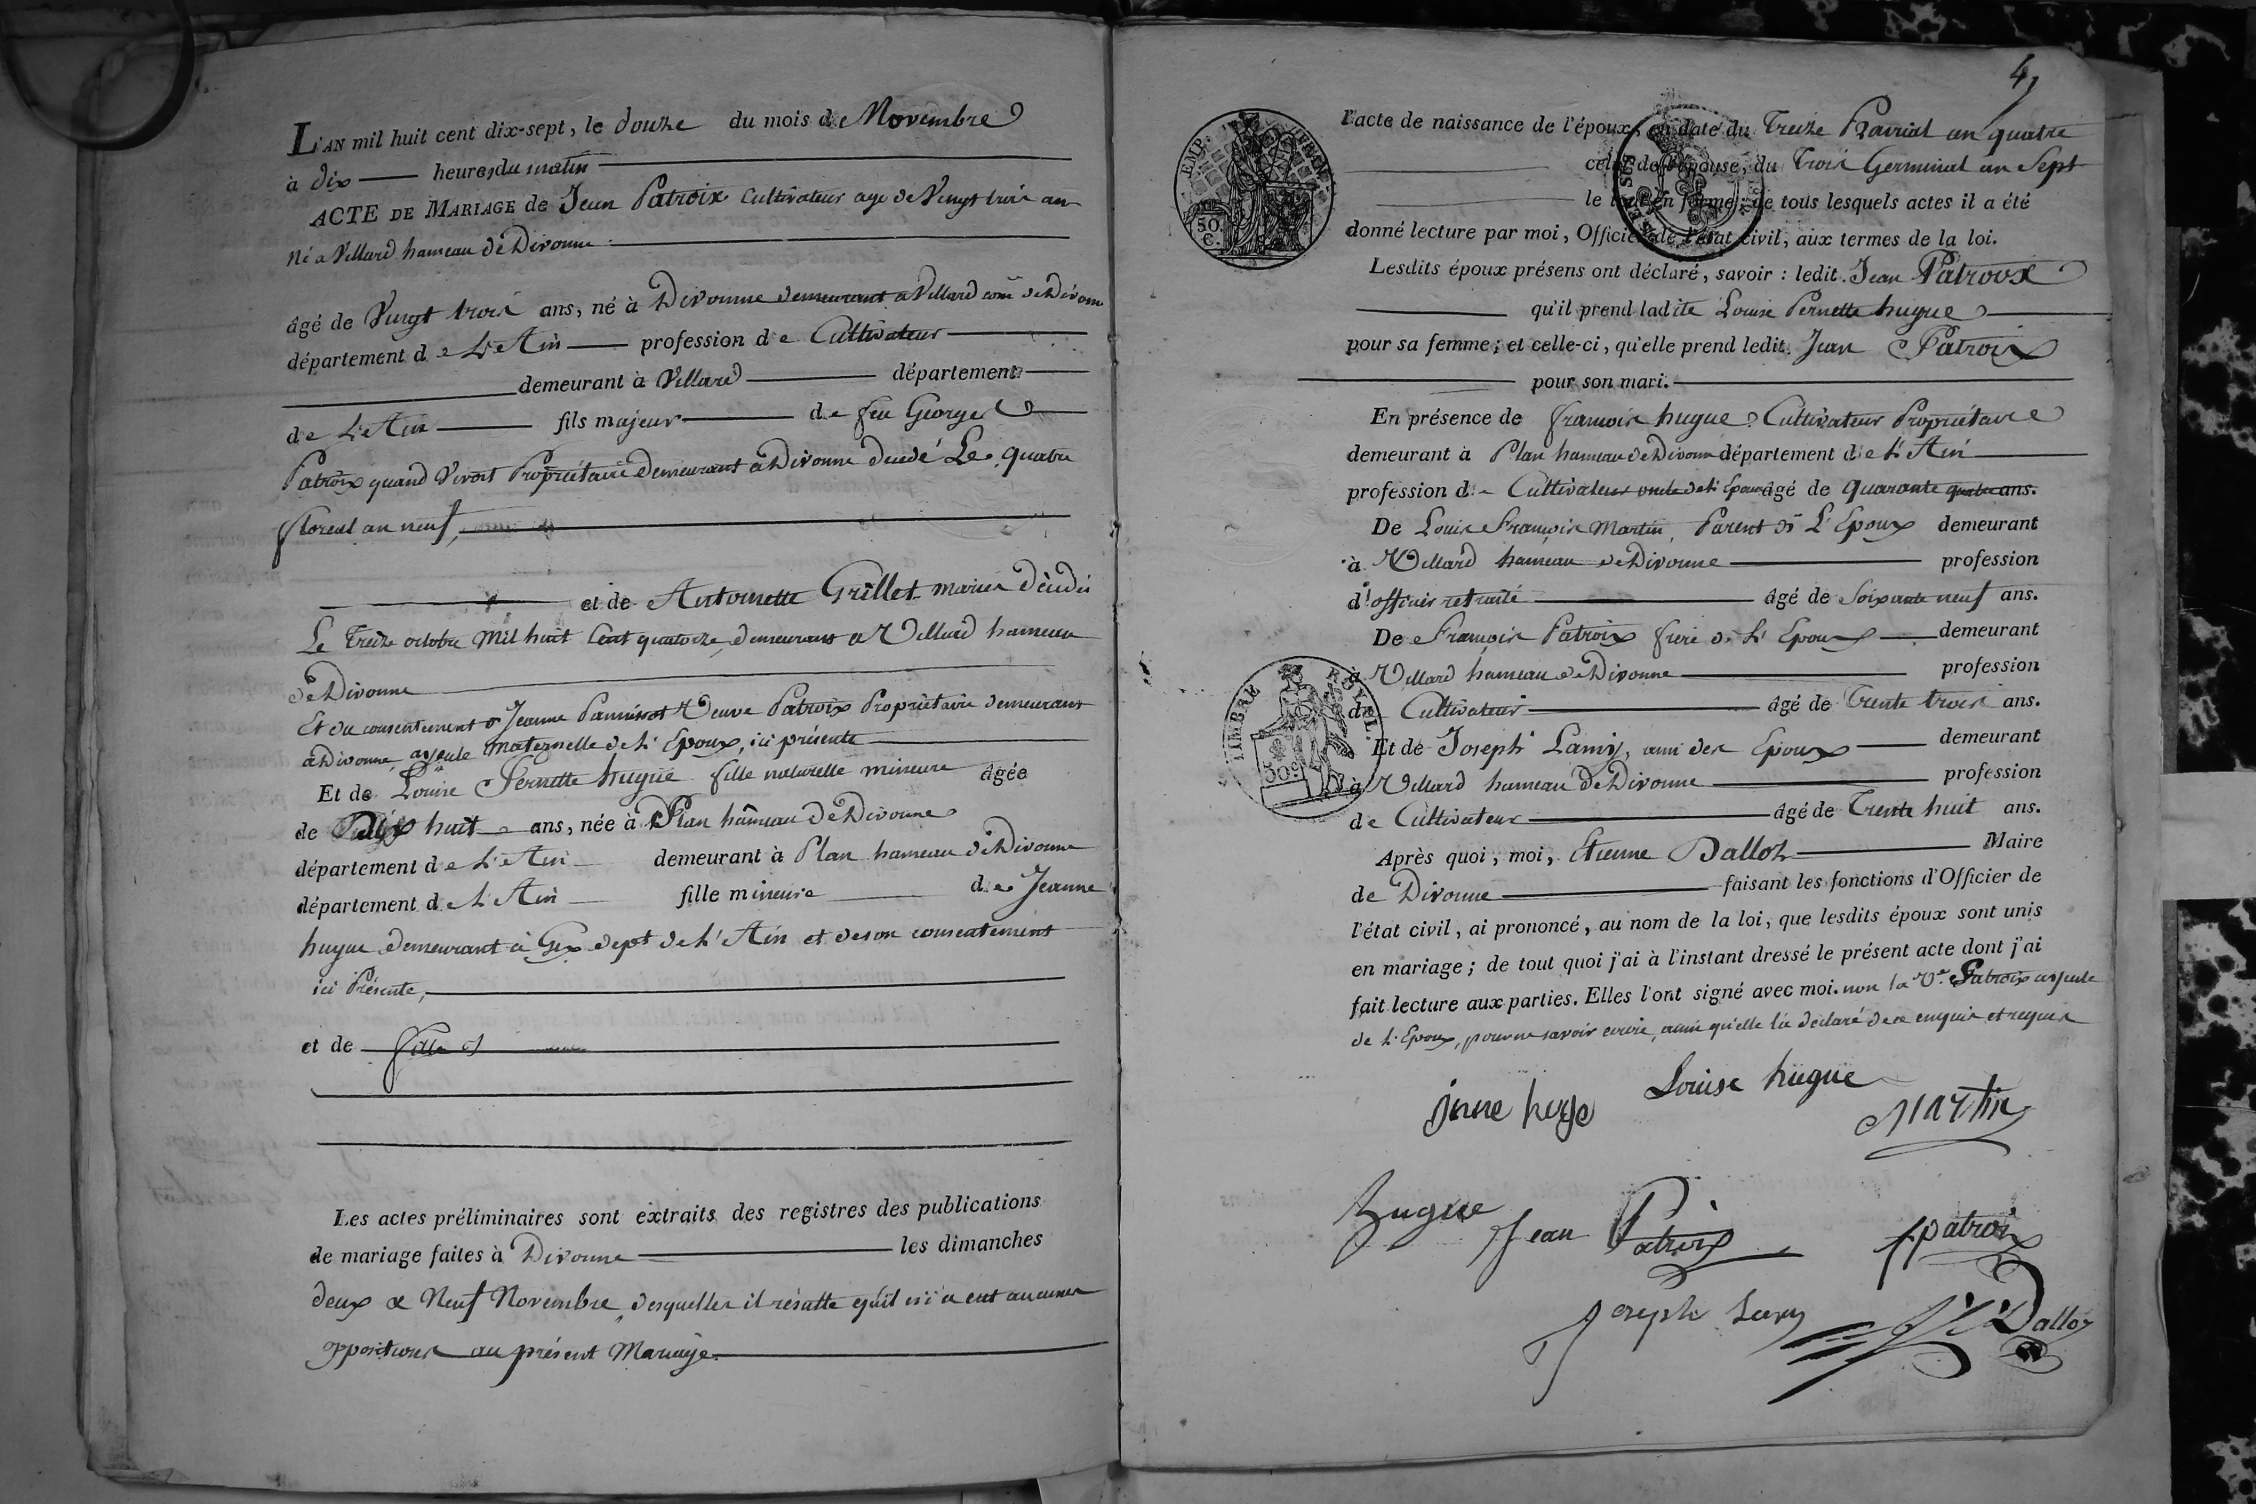 L'AN mil huit cent dix-sept, le douze du mois de Novembre
à dix heures du matin
ACTE DE MARIAGE de Jean Patroix Cultivateur agé de Vingt trois ans
né a Villard hameau de Divonne
âgé de Vingt trois ans, né à Divonne demeurant a Villard com de Divonne
département de L'Ain profession de Cultivateur
demeurant à Villard département
de L'Ain fils majeur de feu George
Patroix quand Vivoit Propriétaire demeurant à Divonne decedé Le quatre
floreal an neuf,
et de Antoinette Grillet mariés décédée
Le Treize octobre mil huit Cent quatorze, demeurant a Villard hameau
de Divonne
Et du consentement de Jeanne Veuve Patroix Propriétaire demeurant
à Divonne ayeule maternelle de L'Epoux, ici présente
Et de Louise Pernette hugue fille naturelle mineure âgée
de huit ans, née à Plan hameau de Divonne
département de L'Ain demeurant à Plan hameau de Divonne
département de L'Ain fille mineure de Jeanne
hugue demeurant à Gex dept de L'Ain et de son consentement
ici Présente,
et de
Les actes préliminaires sont extraits des registres des publications
de mariage faites à Divonne les dimanches
deux & Neuf Novembre, desquelles il résulte qu'il n'i a eut aucunes
oppositions au présent Mariage.
4
l'acte de naissance de l'époux, en date du Treize Prairial an quatre
celui de l'épouse, du Trois Germinal an Sept
le tout en forme; de tous lesquels actes il a été
donné lecture par moi, Officier de l'état civil, aux termes de la loi.
Lesdits époux présens ont déclaré, savoir: ledit Jean Patroix
qu'il prend ladite Louise Pernette hugue
pour sa femme; et celle-ci, qu'elle prend ledit Jean Patroix
pour son mari.
En présence de françois hugue Cultivateur Propriétaire
demeurant à Plan hameau de Divonne département de L'Ain
profession de Cultivateur oncle de L'Epouse âgé de quarante quatre ans.
De Louis François Martin, Parent de L'Epoux demeurant
à Villard hameau de Divonne profession
d'officier retraité âgé de Soixante neuf ans.
De François Patroix frere de L'Epoux demeurant
à Villard hameau de Divonne profession
de Cultivateur âgé de Trente trois ans.
Et de Joseph Lamy, ami des Epoux demeurant
à Villard hameau de Divonne profession
de Cultivateur âgé de Trente huit ans.
Après quoi, moi, Etienne Dalloz Maire
de Divonne faisant les fonctions d'Officier de
l'état civil, ai prononcé, au nom de la loi, que lesdits époux sont unis
en mariage; de tout quoi j'ai à l'instant dressé le présent acte dont j'ai
fait lecture aux parties. Elles l'ont signé avec moi. non la Ve Patroix ayeule
de L'Epoux, pour ne savoir ecrire, ainsi qu'elle l'a déclaré de ce enquise et requise
Louise hugue
Martin
hugue
Jean Patroix
f patroix
Joseph Lamy
Dalloz
EMP.
50.
C.
TIMBRE ROYAL.
50c